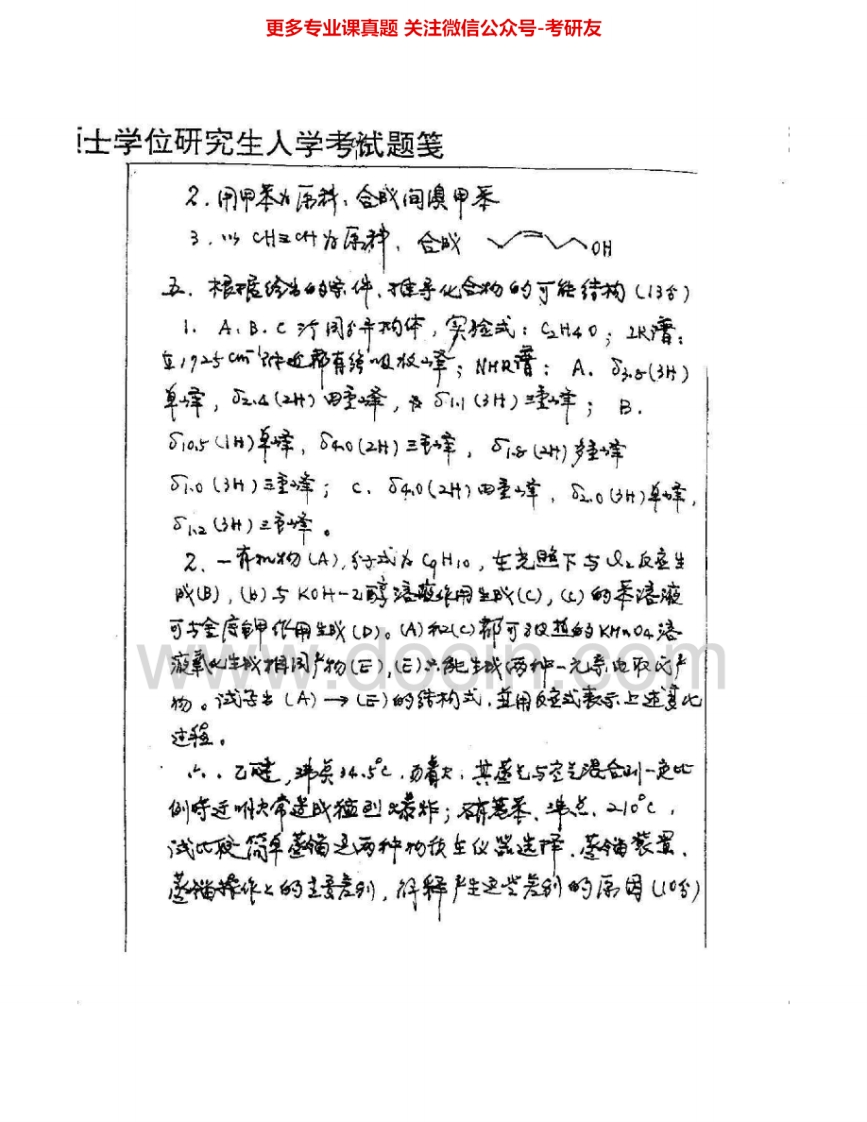 更多专业课真题 关注微信公众号-考研友
士学位研究生入学考试题笺
2. 用甲苯为原料,合成间溴甲苯
3. 以 CH≡CH 为原料,合成 OH
五. 根据给出的条件,推导化合物的可能结构 (13分)
1. A、B、C 为同分异构体,实验式:C2H4O;IR谱:
在1725cm⁻¹附近都有强吸收峰;NMR谱:A. δ3.8(3H)
单峰,δ2.4(2H)四重峰,及 δ1.1(3H)三重峰;B.
δ10.5(1H)单峰,δ4.0(2H)三重峰,δ1.8(2H)多重峰
δ1.0(3H)三重峰;C. δ4.0(2H)四重峰,δ2.0(3H)单峰,
δ1.2(3H)三重峰。
2. 一有机物(A),分子式为C9H10,在光照下与Cl2反应生
成(B),(B)与KOH-乙醇溶液作用生成(C),(C)的苯溶液
可与金属钾作用生成(D)。(A)和(C)都可被热的KMnO4溶
液氧化生成相同产物(E),(E)只能生成两种一元亲电取代产
物。试写出(A)→(E)的结构式,并用反应式表示上述变化
过程。
六. 乙醚,沸点34.5℃,易着火,其蒸气与空气混合到一定比
例时遇明火常造成猛烈爆炸;硝基苯、沸点、210℃,
试比较简单蒸馏这两种物质在仪器选择、蒸馏装置、
蒸馏操作上的主要差别,解释产生这些差别的原因(10分)
www.docin.com